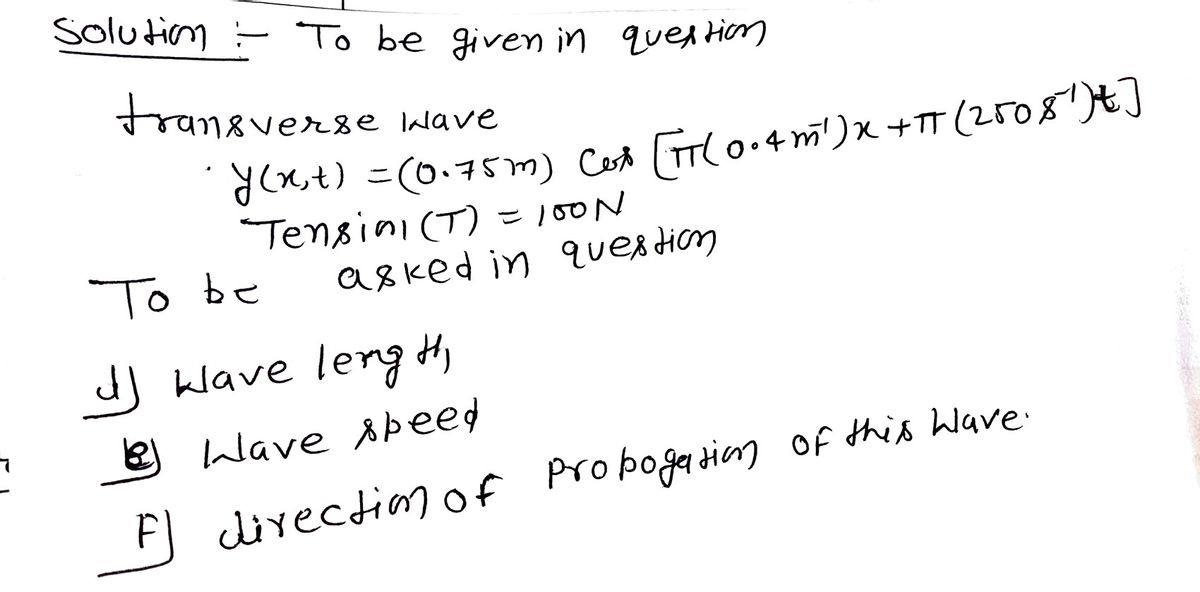 Solution :- To be given in question
transverse wave
y(x,t) = (0.75m) Cos [π(0.4 m⁻¹)x + π(250 s⁻¹)t]
Tension (T) = 100N
To be asked in question
d) Wave length
e) Wave speed
F) direction of propogation of this Wave.